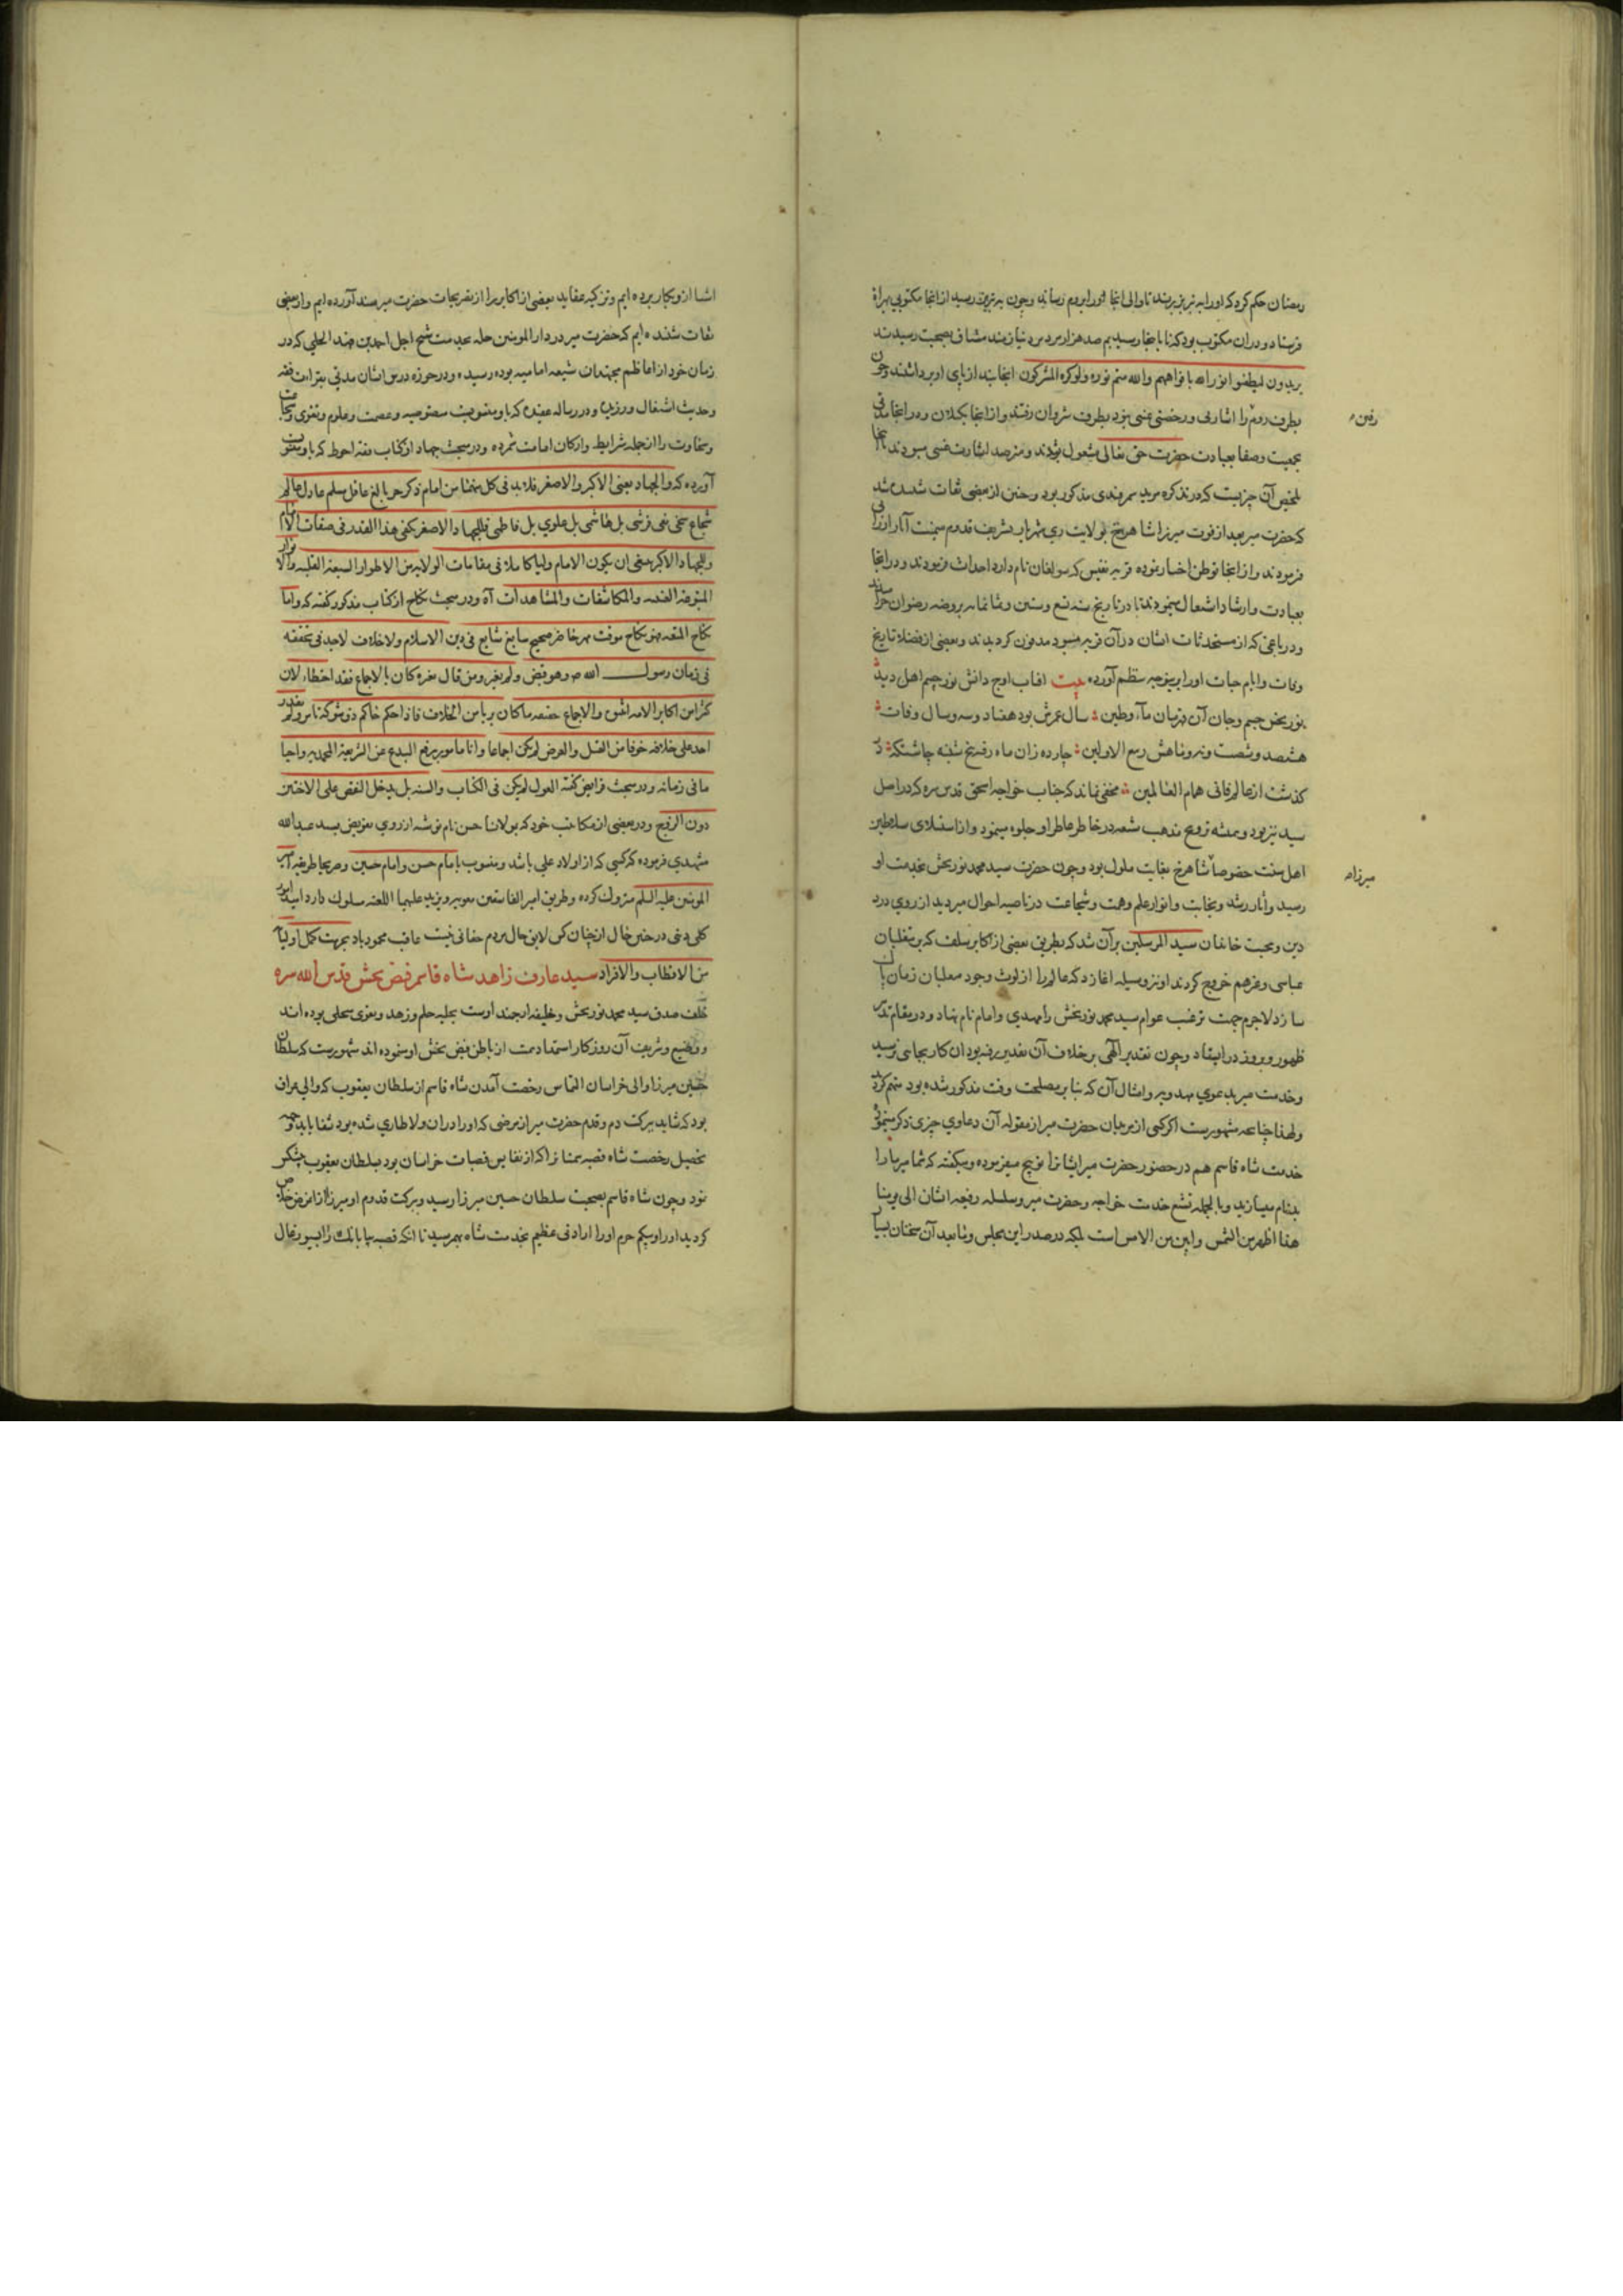 رمضان حکم کرد که او را به تبریز برند تا والی آنجا او را بروم رساند و چون به تبریز رسید از آنجا مکتوبی بهراة
فرستاد و در آن مکتوب بود که تا باینجا رسیدیم صد هزار مرد نیازمند مشتاق بصحبت رسیدند
یریدون لیطفئوا نور الله بافواههم والله متم نوره ولو کره المشرکون اینجا بند از پای او برداشتند و چون
بطرف روم را اشارتی و رخصتی نبود بطرف شروان رفتند و از آنجا بکیلان و در آنجا مدتی
رفتن
بجمعیت و صفا بعبادت حضرت حق تعالی مشغول بودند و مترصد اشارت غیبی میبودند
ملخص آن چیزیست که در تذکره مرید سمرقندی مذکور بود و چنین از بعضی ثقات شنیده شد
که حضرت میر بعد از فوت میرزا شاهرخ بولایت ری شهریار تشریف قدوم میمنت آثار ارزانی
فرمودند و از آنجا توطن اختیار نموده قریه نفیس که سولغان نام دارد احداث فرمودند و در آنجا
بعبادت و ارشاد اشتغال مینمودند تا در تاریخ سنه تسع و ستین و ثمانمایه بروضه رضوان خرامیدند
و در باغی که از مستحدثات ایشان در آن قریه میبود مدفون کردیدند و بعضی از فضلا تاریخ
وفات و ایام حیات او را برینوجه بنظم آورده بیت آفتاب اوج دانش نور چشم اهل دید
نوربخش جسم و جان آن قهرمان ماء و طین سال عمرش بود هفتاد و سه و سال وفات
هشتصد و شصت و نه و ماهش ربیع الاولین چارده زان ماه رفته پنج شنبه چاشتکه
کذشت از عالم فانی همام العالمین مخفی نماند که جناب خواجه اسحق قدس سره که در اصل
سید نیز بود و همیشه ترویج مذهب شیعه در خاطر عاطر او جلوه مینمود و از استیلای سلاطین
اهل سنت خصوصا شاهرخ بغایت ملول بود و چون حضرت سید محمد نوربخش بخدمت او
میرزا
رسید و آثار رشد و نجابت و انوار علم و همت و شجاعت در ناصیه احوال میر دید از روی درد
دین و محبت خاندان سید المرسلین بر آن شد که بطریق بعضی از اکابر سلف که بر متغلبان
عباسی و غیرهم خروج کردند او نیز وسیله آغازد که عالم را از لوث وجود متغلبان زمان پاک
سازد لاجرم جهت ترغیب عوام سید محمد نوربخش را مهدی و امام نام نهاد و در مقام تدبیر
ظهور و بروز در ایستاد و چون تقدیر الهی بر خلاف آن تدبیر رفته بود آن کار بجایی نرسید
و خدمت میر بدعوی مهدویه و امثال آن که بنا بر مصلحت وقت مذکور شده بود متهم کردید
و لهذا چنانچه مشهورست اکر کسی از مریدان حضرت میر از مقوله آن دعاوی چیزی ذکر مینمود
خدمت شاه قاسم هم در حضور حضرت میر ایشانرا توبیخ میفرموده و میکفته که شما میر ما را
بدنام میسازید و بالجمله تشیع خدمت خواجه و حضرت میر و سلسله رفیعه ایشان الی یومنا
هذا اظهر من الشمس و ابین من الامس است بلکه در صدر این مجلس و ما بعد آن سخنان بسیار
اشنا از و بکار برده ایم و تزکیه عقاید بعضی از اکابر را از تصریحات حضرت میر سند آورده ایم و از بعضی
ثقات شنیده ایم که حضرت میر در دار المومنین حله بخدمت شیخ اجل احمد بن فهد الحلی که در
زمان خود از اعاظم مجتهدان شیعه امامیه بوده رسیده و در حوزه درس ایشان مدتی بقراءت فقه
و حدیث اشتغال ورزیده و در رساله عقیده که باو منسوبست منصوصیه و عصمت و علوم و تقوی و شجاعت
و سخاوت را از جمله شرایط و ارکان امامت شمرده و در مبحث جهاد از کتاب فقه احوط که باو منسوبست
آورده که والجهاد یعنی الاکبر و الاصغر فلابد فی کل منهما من امام ذکر حر بالغ عاقل مسلم عادل عالم
شجاع سخی تقی قرشی بل هاشمی بل علوی بل فاطمی فللجهاد الاصغر یکفی هذا القدر فی صفات الامام
و للجهاد الاکبر ینبغی ان یکون الامام ولیا کاملا فی مقامات الولایه من الاطوار السبعة القلبیه و الانوار
المتنوعة الغیبیه و المکاشفات و المشاهدات آه و در مبحث نکاح از کتاب مذکور کفته که و اما
نکاح المتعه فهو نکاح موقت بمهر خاص صحیح سایغ شایع فی دین الاسلام و لاخلاف لاحد فی تحققه
فی زمان رسول الله ص و هو قبض و لم یغیره و من قال یغیره کان بالاجماع فقد اخطاء لان
کثیرا من اکابر الامه اتقوا و الاجماع حینئذ ما کان بریا من الخلاف فاذا حکم حاکم ذو شوکة بامر و لم یقدر
احد علی خلافه خوفا من القتل و العرض لم یکن اجماعا و انا مامور برفع البدع عن الشریعة المحمدیه و احیاء
ما فی زمانه و در مبحث فرایض کفته العول لم یکن فی الکتاب و السنه بل یدخل النقص علی الاختین
دون الزوج و در بعضی از مکاتیب خود که بمولانا حسن نام نوشته از روی تعریض بسید عبد الله
مشهدی فرموده که کسی که از اولاد علی باشد و منسوب بامام حسن و امام حسین و صریحا طریقه امیر
المومنین علیه السلم متروک کرده و طریق امیر الفاسقین معویه و یزید علیهما اللعنه سلوک دارد امید
کلی و غی در حین خال از چنان کس لایق حال مردم حقانی نیست عاقبت محمود باد بحرمت کمل اولیاء
من الاقطاب و الافراد سید عارف زاهد شاه قاسم فیض بخش قدس الله سره
خلف صدق سید محمد نوربخش و خلیفه ارجمند اوست بحلیه حلم و زهد و تقوی متحلی بوده اند
و وضیع و شریف آن روزکار استفاده همت از باطن فیض بخش او نموده اند مشهورست که سلطان
حسین میرزا والی خراسان التماس رخصت آمدن شاه قاسم از سلطان یعقوب که والی عراق
بود که شاید ببرکت دم و قدم حضرت میر از مرضی که او را در آن ولا طاری شده بود شفا یابد
تحصیل رخصت شاه قصبه سمنانرا که از نفایس قصبات خراسان بود بسلطان یعقوب پیشکش
نمود و چون شاه قاسم بصحبت سلطان حسین میرزا رسید و ببرکت قدوم او میرزا از آن مرض خلاص
کردید او را و بیکم حرم او را ارادتی عظیم بخدمت شاه بهم رسید تا آنکه قصبه بیابانک را بسیورغال